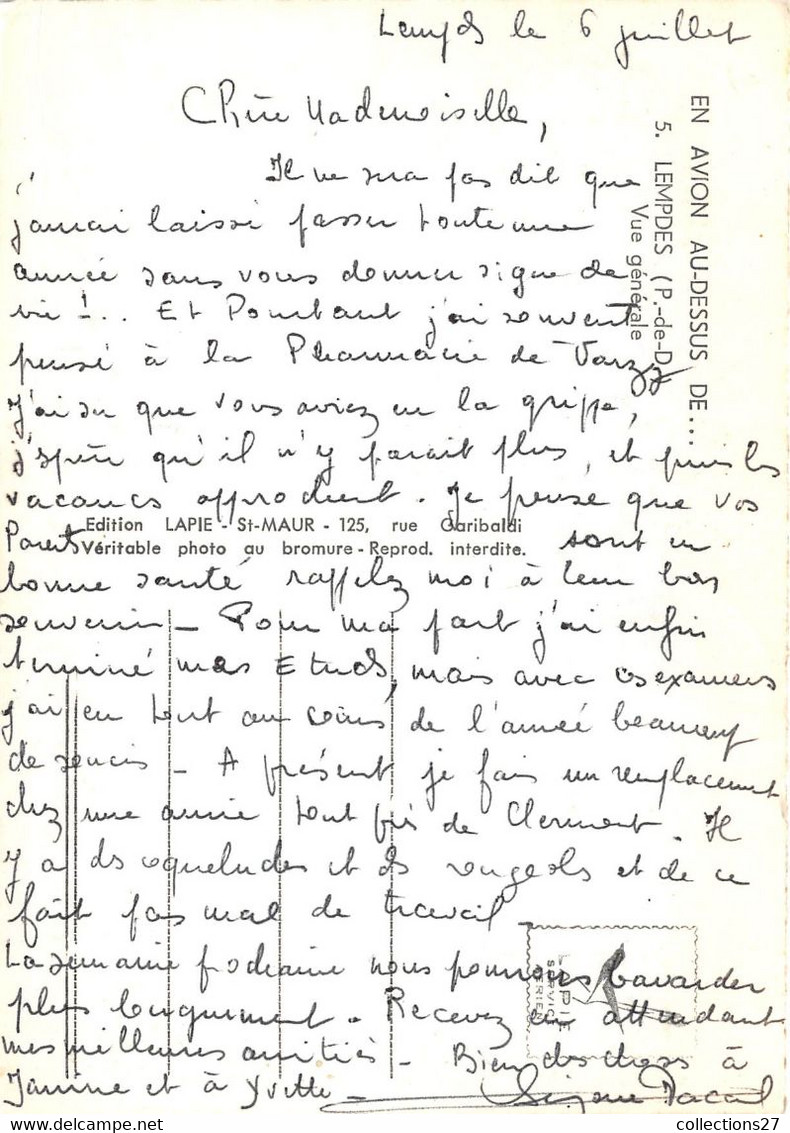 Lempdes le 6 juillet
Chère Mademoiselle,
Il ne sera pas dit que
j'aurai laissé passer toute une
année sans vous donner signe de
vie !.. Et Pourtant j'ai souvent
pensé à la Pharmacie de Varzy
J'ai su que vous aviez eu la grippe,
j'espère qu'il n'y parait plus, et puis les
vacances approchent. Je pense que vos
Parents sont en
bonne santé rappelez moi à leur bon
souvenir - Pour ma part j'ai enfin
terminé mes Etudes, mais avec ces examens
j'ai eu tout au cours de l'année beaucoup
de soucis - A présent je fais un remplacement
chez une amie tout près de Clermont. Il
y a des coqueluches et des rougeoles et de ce
fait pas mal de travail -
La semaine prochaine nous pourrons bavarder
plus longuement. Recevez en attendant
mes meilleures amitiés - Bien des choses à
Janine et à Yvette -
EN AVION AU-DESSUS DE...
5. LEMPDES (P.-de-D.
Vue générale
Edition LAPIE - St-MAUR - 125, rue Garibaldi
Véritable photo au bromure - Reprod. interdite.
LAPIE
SERVICE
AERIEN
collections27